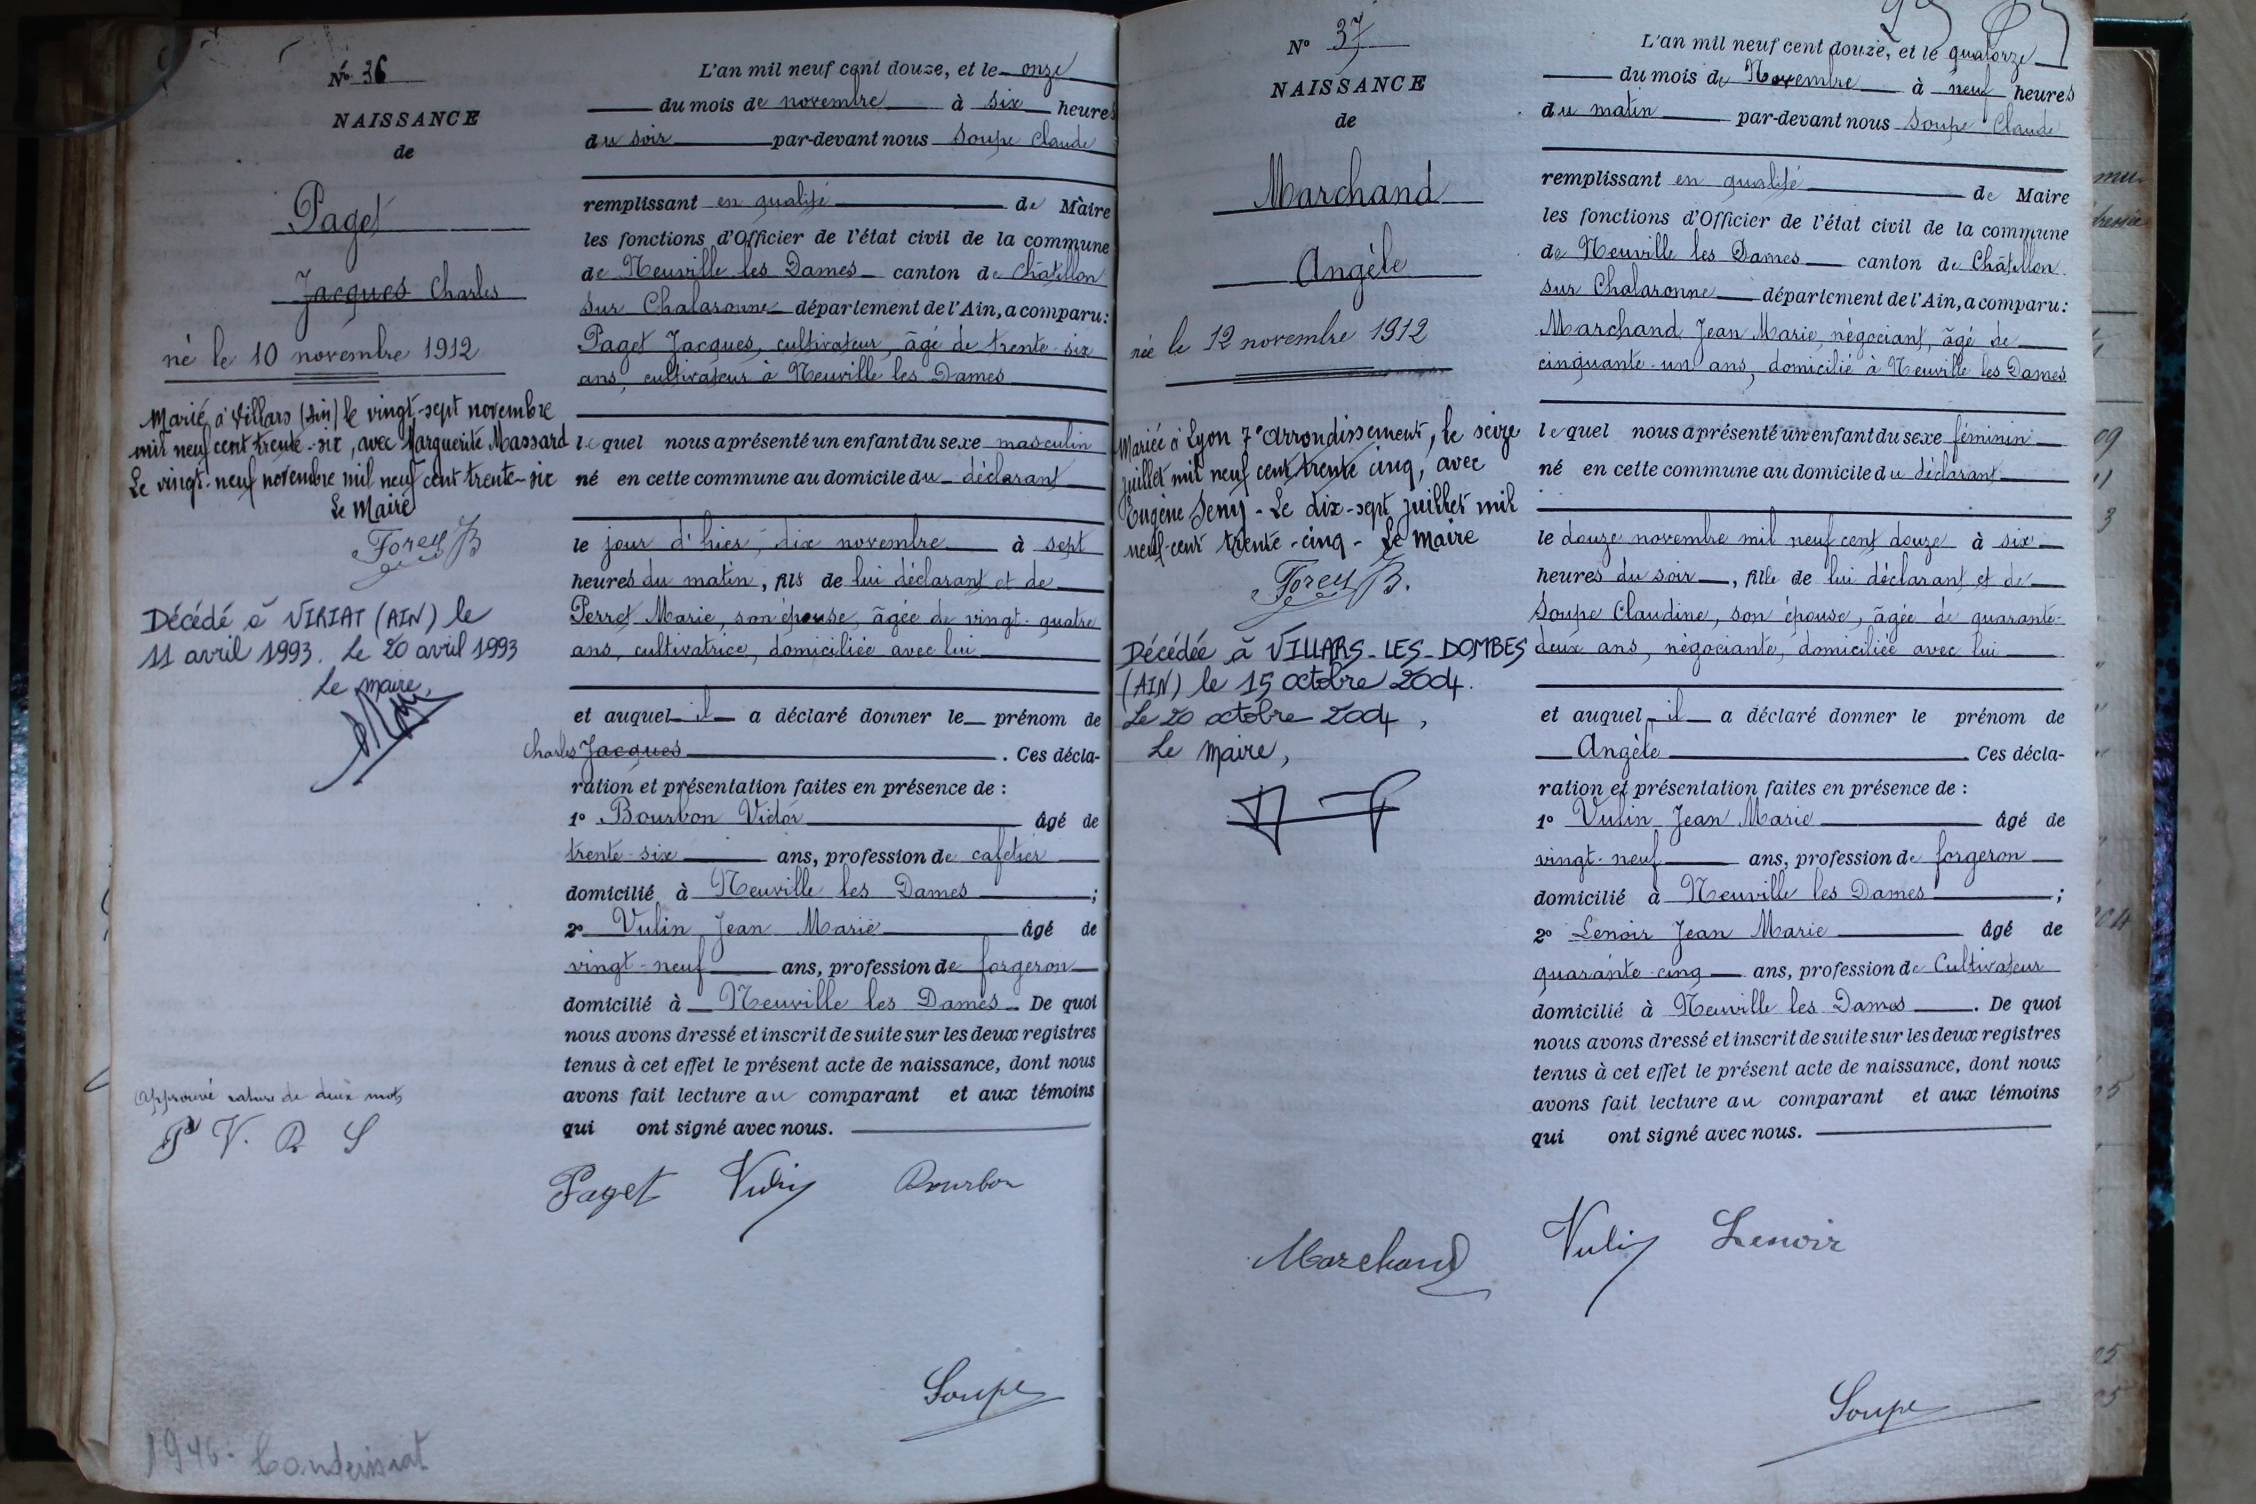 N° 36
NAISSANCE
de
Paget
Jacques Charles
né le 10 novembre 1912
Marié à Villars (Ain) le vingt-sept novembre
mil neuf cent trente-six, avec Marguerite Massard
Le vingt-neuf novembre mil neuf cent trente-six
Le Maire
Forey B
Décédé à VIRIAT (AIN) le
11 avril 1993. Le 20 avril 1993
Le maire,
Approuvé rature de deux mots
P V. B S
1946. Condeissiat
L'an mil neuf cent douze, et le onze
du mois de novembre à six heures
du soir par-devant nous Soupe Claude
remplissant en qualité de Maire
les fonctions d'Officier de l'état civil de la commune
de Neuville les Dames canton de Châtillon
sur Chalaronne département de l'Ain, a comparu:
Paget Jacques, cultivateur, âgé de trente-six
ans, cultivateur à Neuville les Dames
lequel nous a présenté un enfant du sexe masculin
né en cette commune au domicile du déclarant
le jour d'hier, dix novembre à sept
heures du matin, fils de lui déclarant et de
Perret Marie, son épouse, âgée de vingt-quatre
ans, cultivatrice, domiciliée avec lui
et auquel il a déclaré donner le prénom de
Charles Jacques . Ces décla-
ration et présentation faites en présence de :
1° Bourbon Victor âgé de
trente-six ans, profession de cafetier
domicilié à Neuville les Dames ;
2° Vulin Jean Marie âgé de
vingt-neuf ans, profession de forgeron
domicilié à Neuville les Dames. De quoi
nous avons dressé et inscrit de suite sur les deux registres
tenus à cet effet le présent acte de naissance, dont nous
avons fait lecture au comparant et aux témoins
qui ont signé avec nous.
Paget Vulin Bourbon
Soupe
N° 37
NAISSANCE
de
Marchand
Angèle
née le 12 novembre 1912
Mariée à Lyon 7e arrondissement, le seize
juillet mil neuf cent trente cinq, avec
Eugène Jeny - Le dix-sept juillet mil
neuf-cent trente-cinq - Le Maire
Forey B.
Décédée à VILLARS-LES-DOMBES
(AIN) le 15 octobre 2004.
Le 20 octobre 2004,
Le Maire,
L'an mil neuf cent douze, et le quatorze
du mois de Novembre à neuf heures
du matin par-devant nous Soupe Claude
remplissant en qualité de Maire
les fonctions d'Officier de l'état civil de la commune
de Neuville les Dames canton de Châtillon
sur Chalaronne département de l'Ain, a comparu:
Marchand Jean Marie, négociant, âgé de
cinquante-un ans, domicilié à Neuville les Dames
lequel nous a présenté un enfant du sexe féminin
né en cette commune au domicile du déclarant
le douze novembre mil neuf cent douze à six
heures du soir, fille de lui déclarant et de
Soupe Claudine, son épouse, âgée de quarante-
deux ans, négociante, domiciliée avec lui
et auquel il a déclaré donner le prénom de
Angèle . Ces décla-
ration et présentation faites en présence de :
1° Vulin Jean Marie âgé de
vingt-neuf ans, profession de forgeron
domicilié à Neuville les Dames ;
2° Lenoir Jean Marie âgé de
quarante-cinq ans, profession de Cultivateur
domicilié à Neuville les Dames . De quoi
nous avons dressé et inscrit de suite sur les deux registres
tenus à cet effet le présent acte de naissance, dont nous
avons fait lecture au comparant et aux témoins
qui ont signé avec nous.
Marchand Vulin Lenoir
Soupe